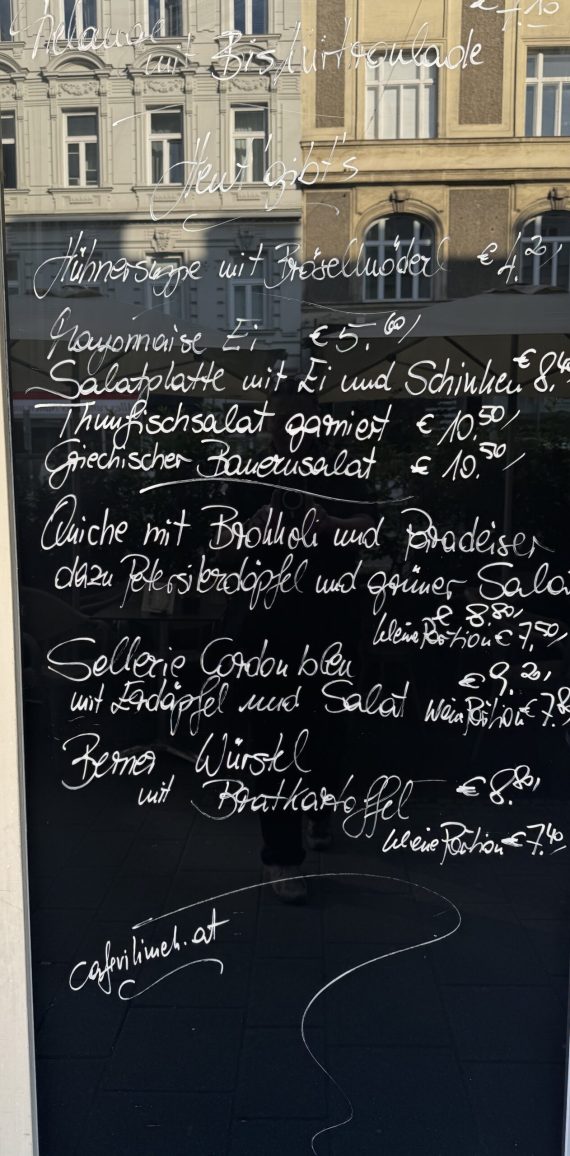 € 7.10
Melange mit Biskuitroulade
Heut' gibt's
Hühnersuppe mit Bröselknöderl € 4.20
Mayonnaise Ei € 5.60
Salatplatte mit Ei und Schinken € 8.40
Thunfischsalat garniert € 10.50
Griechischer Bauernsalat € 10.50
Quiche mit Brokkoli und Paradeiser
dazu Petersilerdäpfel und grüner Salat
€ 8.80
kleine Portion € 7.50
Sellerie Cordon bleu € 9.20
mit Erdäpfel und Salat kleine Portion € 7.8
Berner Würstel
mit Bratkartoffel € 8.80
kleine Portion € 7.40
cafevilimek.at